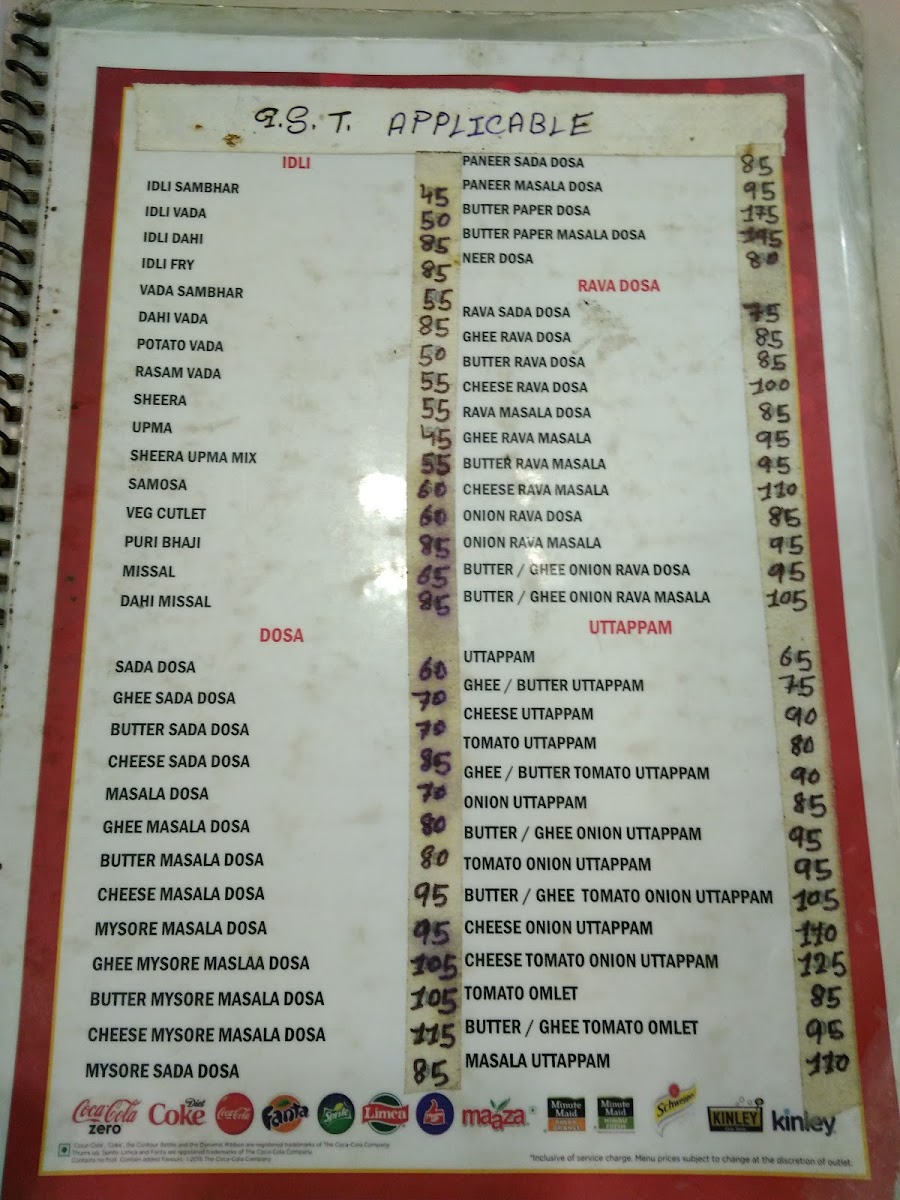 G.S.T. APPLICABLE
IDLI
IDLI SAMBHAR 45
IDLI VADA 50
IDLI DAHI 85
IDLI FRY 85
VADA SAMBHAR 55
DAHI VADA 85
POTATO VADA 50
RASAM VADA 55
SHEERA 55
UPMA 45
SHEERA UPMA MIX 55
SAMOSA 60
VEG CUTLET 60
PURI BHAJI 85
MISSAL 65
DAHI MISSAL 85
DOSA
SADA DOSA 60
GHEE SADA DOSA 70
BUTTER SADA DOSA 70
CHEESE SADA DOSA 85
MASALA DOSA 70
GHEE MASALA DOSA 80
BUTTER MASALA DOSA 80
CHEESE MASALA DOSA 95
MYSORE MASALA DOSA 95
GHEE MYSORE MASLAA DOSA 105
BUTTER MYSORE MASALA DOSA 105
CHEESE MYSORE MASALA DOSA 115
MYSORE SADA DOSA 85
PANEER SADA DOSA 85
PANEER MASALA DOSA 95
BUTTER PAPER DOSA 175
BUTTER PAPER MASALA DOSA 195
NEER DOSA 80
RAVA DOSA
RAVA SADA DOSA 75
GHEE RAVA DOSA 85
BUTTER RAVA DOSA 85
CHEESE RAVA DOSA 100
RAVA MASALA DOSA 85
GHEE RAVA MASALA 95
BUTTER RAVA MASALA 95
CHEESE RAVA MASALA 110
ONION RAVA DOSA 85
ONION RAVA MASALA 95
BUTTER / GHEE ONION RAVA DOSA 95
BUTTER / GHEE ONION RAVA MASALA 105
UTTAPPAM
UTTAPPAM 65
GHEE / BUTTER UTTAPPAM 75
CHEESE UTTAPPAM 90
TOMATO UTTAPPAM 80
GHEE / BUTTER TOMATO UTTAPPAM 90
ONION UTTAPPAM 85
BUTTER / GHEE ONION UTTAPPAM 95
TOMATO ONION UTTAPPAM 95
BUTTER / GHEE TOMATO ONION UTTAPPAM 105
CHEESE ONION UTTAPPAM 110
CHEESE TOMATO ONION UTTAPPAM 125
TOMATO OMLET 85
BUTTER / GHEE TOMATO OMLET 95
MASALA UTTAPPAM 110
Coca-Cola zero Diet Coke Coca-Cola Fanta Sprite Limca maaza Minute Maid Minute Maid Schweppes KINLEY kinley
"Coca-Cola", "Coke", the Contour Bottle and the Dynamic Ribbon are registered trademarks of The Coca-Cola Company.
Thums up, Sprite, Limca and Fanta are registered trademarks of The Coca-Cola Company.
Contains no fruit. Contain added flavours. The Coca-Cola Company.
*Inclusive of service charge. Menu prices subject to change at the discretion of outlet.